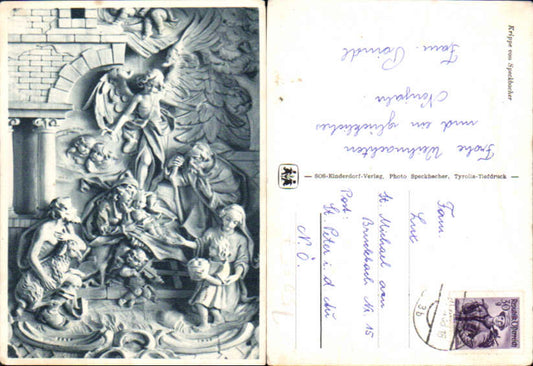 Krippe von Speckbacher
Frohe Weihnachten
und ein glückliches
Neujahr.
Fam.
SOS-Kinderdorf-Verlag, Photo Speckbacher, Tyrolia-Tiefdruck
Fam.
St. Michael am
Bruckbach Nr 15
Post:
St Peter i. d Au
N. Ö.